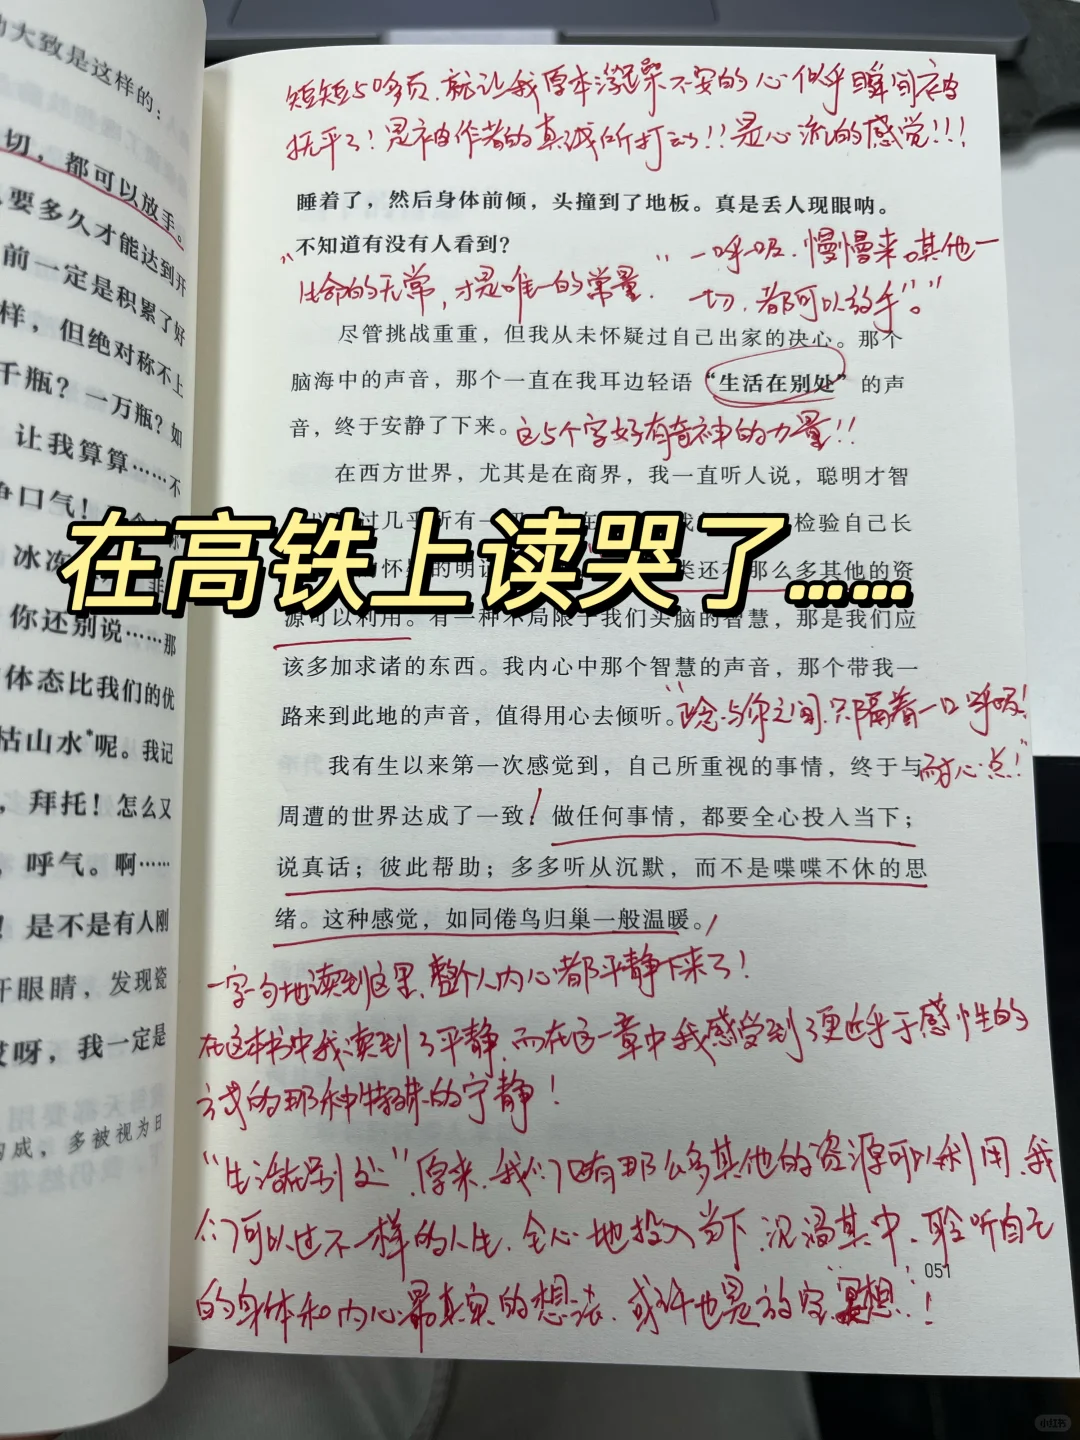 的大致是这样的：
切，都可以放手。
要多久才能达到开
前一定是积累了好
样，但绝对称不上
千瓶？一万瓶？如
让我算算……不
争口气！
冰冻
你还别说……那
体态比我们的优
枯山水*呢。我记
，拜托！怎么又
，呼气。啊……
！是不是有人刚
开眼睛，发现瓷
哎呀，我一定是
构成，多被视为日
短短50多页，就让我原本浮躁不安的心似乎瞬间被
抚平了！是被作者的真诚所打动!!是心流的感觉!!!
睡着了，然后身体前倾，头撞到了地板。真是丢人现眼呐。
不知道有没有人看到？
“生命的无常，才是唯一的常量”
“一呼一吸，慢慢来。其他一
切，都可以放手”。
尽管挑战重重，但我从未怀疑过自己出家的决心。那个
脑海中的声音，那个一直在我耳边轻语“生活在别处”的声
音，终于安静了下来。
这5个字好有奇神的力量!!
在西方世界，尤其是在商界，我一直听人说，聪明才智
过几乎所有一
检验自己长
怀
的明
类还有那么多其他的资
在高铁上读哭了……
源可以利用。有一种不局限于我们头脑的智慧，那是我们应
该多加求诸的东西。我内心中那个智慧的声音，那个带我一
路来到此地的声音，值得用心去倾听。
“我与你之间，只隔着一口呼吸！
耐心点！”
我有生以来第一次感觉到，自己所重视的事情，终于与
周遭的世界达成了一致：做任何事情，都要全心投入当下；
说真话；彼此帮助；多多听从沉默，而不是喋喋不休的思
绪。这种感觉，如同倦鸟归巢一般温暖。
一字一句地读到这里，整个人内心都平静下来了！
在这本书中我读到了平静，而在这一章中我感受到了更近乎于感性的
方式的那种特殊的宁静！
“生活在别处”，原来，我们有那么多其他的资源可以利用，我
们可以过不一样的人生，全心地投入当下，沉浸其中，聆听自己
的身体和内心最真实的想法，或许也是放空冥想！
051
小红书